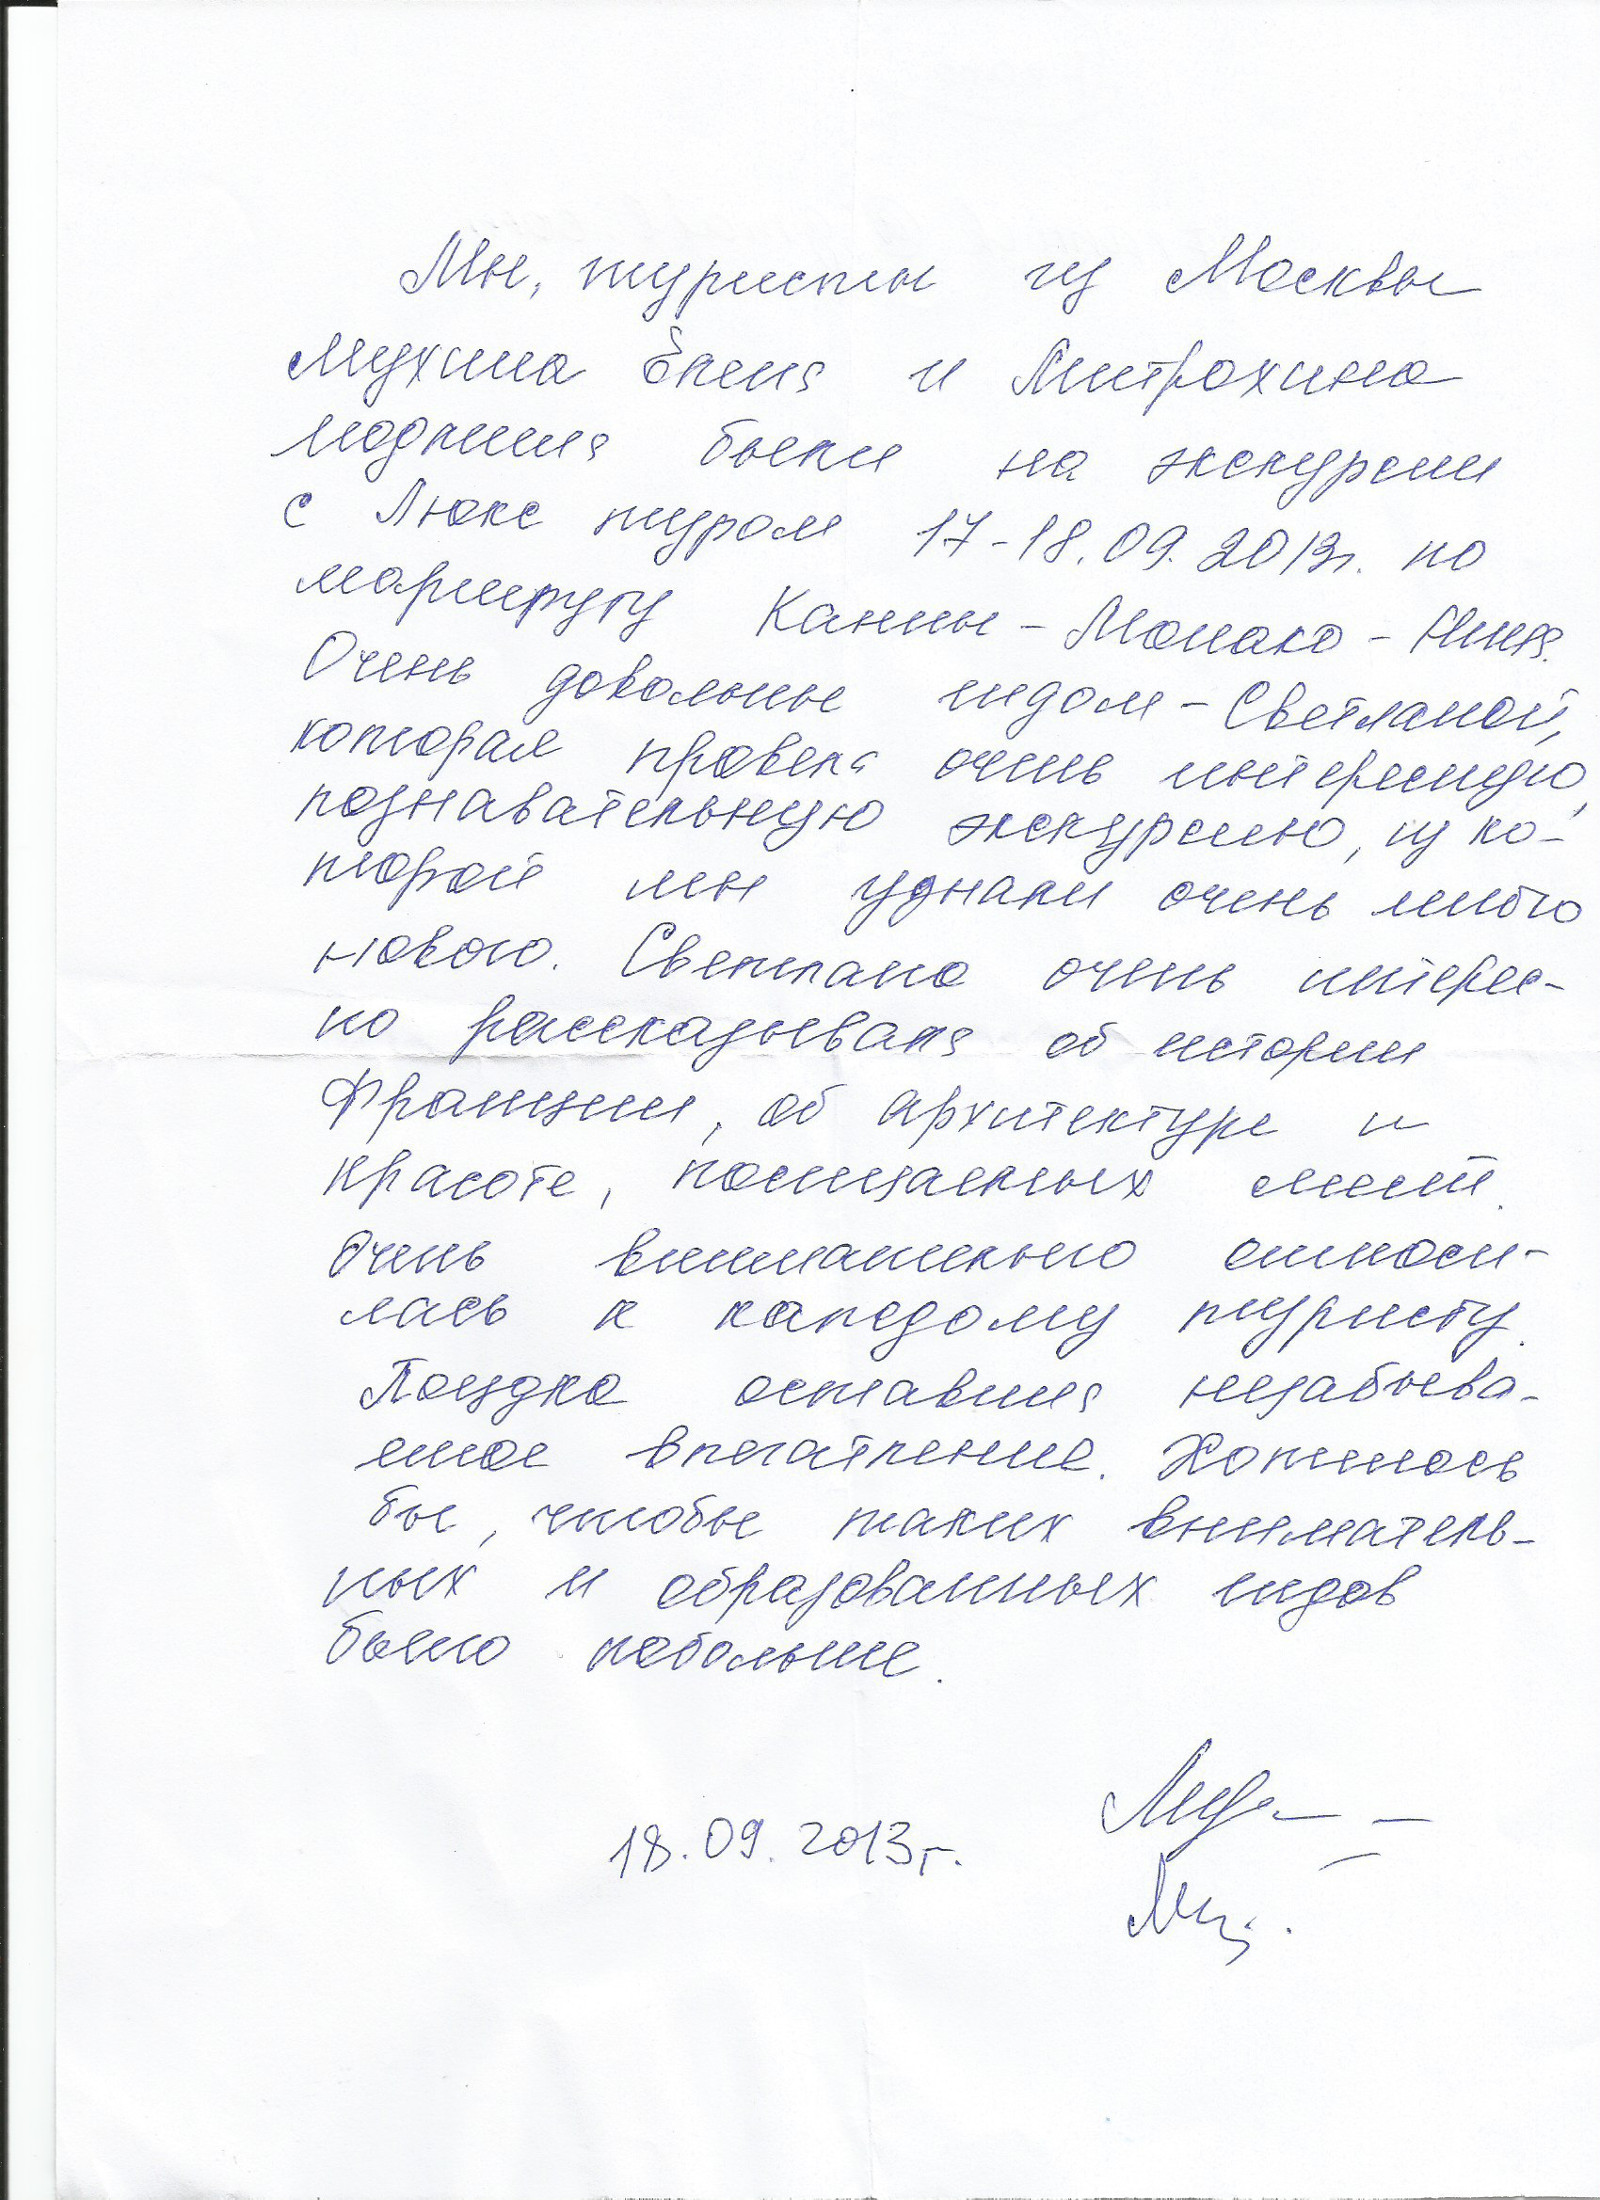 Мы, туристы из Москвы
Мухина Елена и Митрохина
Людмила были на экскурсии
с Люкс туром 17-18.09.2013г. по
маршруту Канны - Монако - Ницца.
Очень довольны гидом - Светланой,
которая провела очень интересную,
познавательную экскурсию, из ко-
торой мы узнали очень много
нового. Светлана очень интерес-
но рассказывала об истории
Франции, об архитектуре и
красоте, посещаемых мест.
Очень внимательно относи-
лась к каждому туристу.
Поездка оставила незабыва-
емое впечатление. Хотелось
бы, чтобы таких вниматель-
ных и образованных гидов
было побольше.
18.09.2013г.